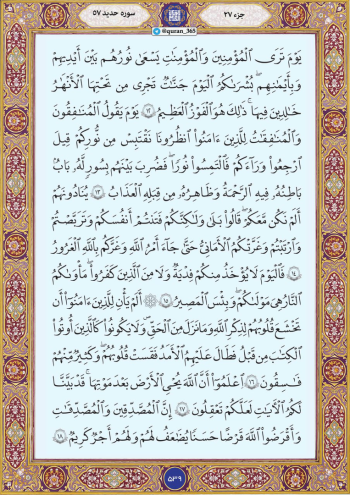 جزء ۲۷
@quran_365
سوره حدید ۵۷
يَوْمَ تَرَى الْمُؤْمِنِينَ وَالْمُؤْمِنَاتِ يَسْعَىٰ نُورُهُم بَيْنَ أَيْدِيهِمْ
وَبِأَيْمَانِهِم بُشْرَاكُمُ الْيَوْمَ جَنَّاتٌ تَجْرِي مِن تَحْتِهَا الْأَنْهَارُ
خَالِدِينَ فِيهَا ۚ ذَٰلِكَ هُوَ الْفَوْزُ الْعَظِيمُ ﴿١٢﴾ يَوْمَ يَقُولُ الْمُنَافِقُونَ
وَالْمُنَافِقَاتُ لِلَّذِينَ ءَامَنُوا انظُرُونَا نَقْتَبِسْ مِن نُّورِكُمْ قِيلَ
ارْجِعُوا وَرَاءَكُمْ فَالْتَمِسُوا نُورًا ۖ فَضُرِبَ بَيْنَهُم بِسُورٍ لَّهُ بَابٌ
بَاطِنُهُ فِيهِ الرَّحْمَةُ وَظَاهِرُهُ مِن قِبَلِهِ الْعَذَابُ ﴿١٣﴾ يُنَادُونَهُمْ
أَلَمْ نَكُن مَّعَكُمْ ۖ قَالُوا بَلَىٰ وَلَٰكِنَّكُمْ فَتَنتُمْ أَنفُسَكُمْ وَتَرَبَّصْتُمْ
وَارْتَبْتُمْ وَغَرَّتْكُمُ الْأَمَانِيُّ حَتَّىٰ جَاءَ أَمْرُ اللَّهِ وَغَرَّكُم بِاللَّهِ الْغَرُورُ
﴿١٤﴾ فَالْيَوْمَ لَا يُؤْخَذُ مِنكُمْ فِدْيَةٌ وَلَا مِنَ الَّذِينَ كَفَرُوا ۚ مَأْوَاكُمُ
النَّارُ ۖ هِيَ مَوْلَاكُمْ ۖ وَبِئْسَ الْمَصِيرُ ﴿١٥﴾ ۞ أَلَمْ يَأْنِ لِلَّذِينَ ءَامَنُوا أَن
تَخْشَعَ قُلُوبُهُمْ لِذِكْرِ اللَّهِ وَمَا نَزَلَ مِنَ الْحَقِّ وَلَا يَكُونُوا كَالَّذِينَ أُوتُوا
الْكِتَابَ مِن قَبْلُ فَطَالَ عَلَيْهِمُ الْأَمَدُ فَقَسَتْ قُلُوبُهُمْ ۖ وَكَثِيرٌ مِّنْهُمْ
فَاسِقُونَ ﴿١٦﴾ اعْلَمُوا أَنَّ اللَّهَ يُحْيِي الْأَرْضَ بَعْدَ مَوْتِهَا ۚ قَدْ بَيَّنَّا
لَكُمُ الْآيَاتِ لَعَلَّكُمْ تَعْقِلُونَ ﴿١٧﴾ إِنَّ الْمُصَّدِّقِينَ وَالْمُصَّدِّقَاتِ
وَأَقْرَضُوا اللَّهَ قَرْضًا حَسَنًا يُضَاعَفُ لَهُمْ وَلَهُمْ أَجْرٌ كَرِيمٌ ﴿١٨﴾
۵۳۹